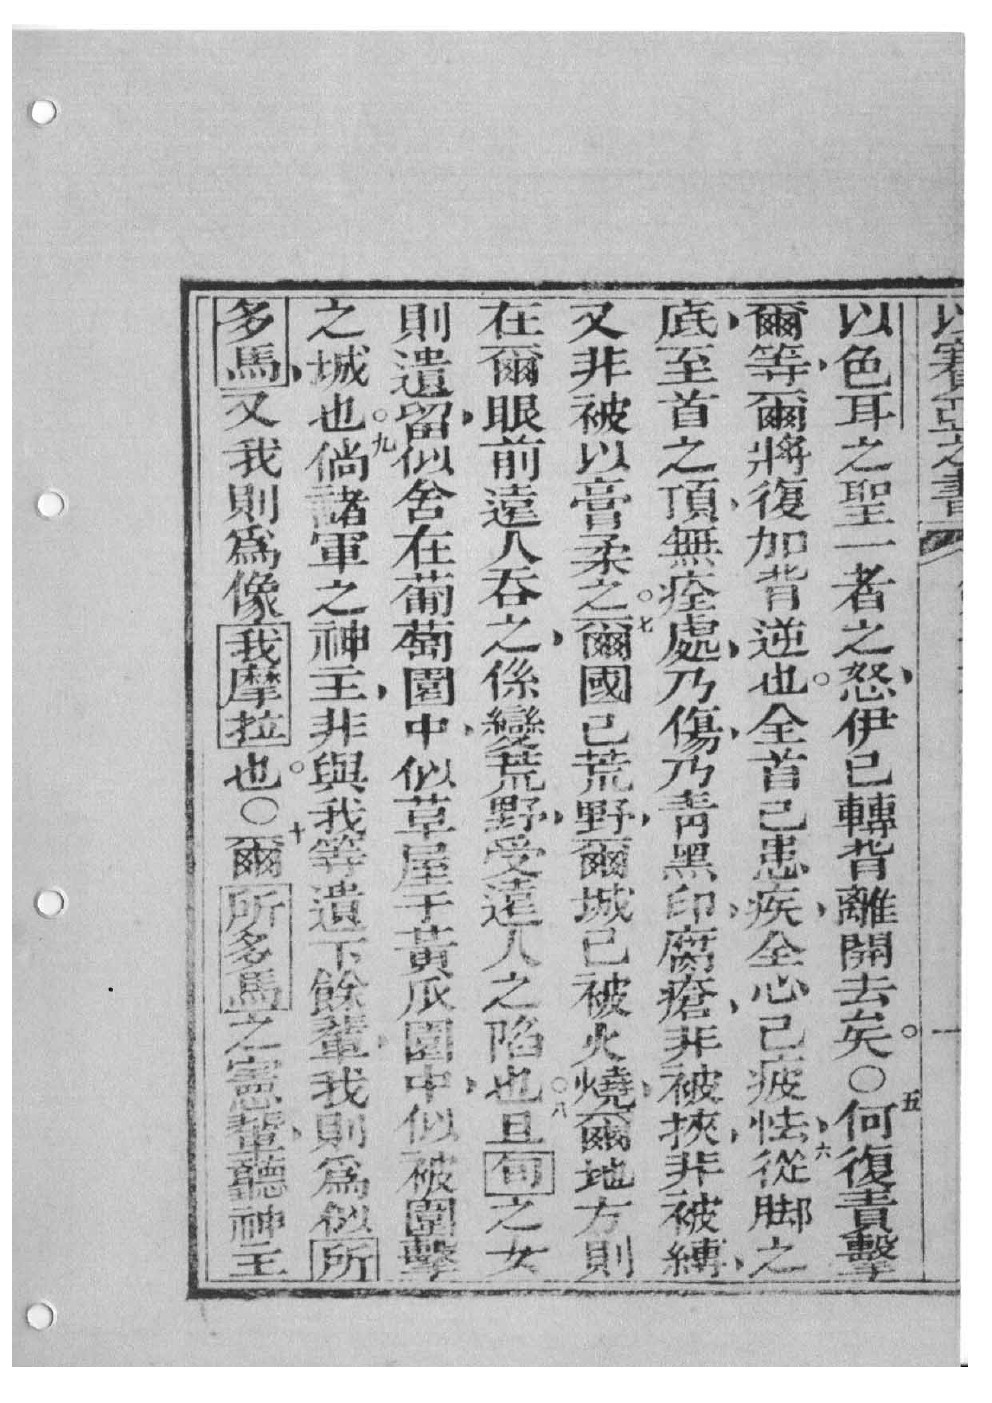 以賽亞之書
以色耳之聖一者之怒伊已轉背離開去矣○五何復責擊
爾等爾將復加背逆也全首已患疾全心已疲怯六從脚之
底至首之頂無痊處乃傷乃靑黑印腐瘡非被挾非被縛
又非被以膏柔之七爾國已荒野爾城已被火燒爾地方則
在爾眼前遠人吞之係變荒野受遠人之陷也八且旬之女
則遺留似舍在葡萄園中似草屋于黃瓜園中似被圍擊
之城也九倘諸軍之神主非與我等遺下餘輩我則爲似所
多馬又我則爲像我摩拉也○十爾所多馬之憲輩聽神主